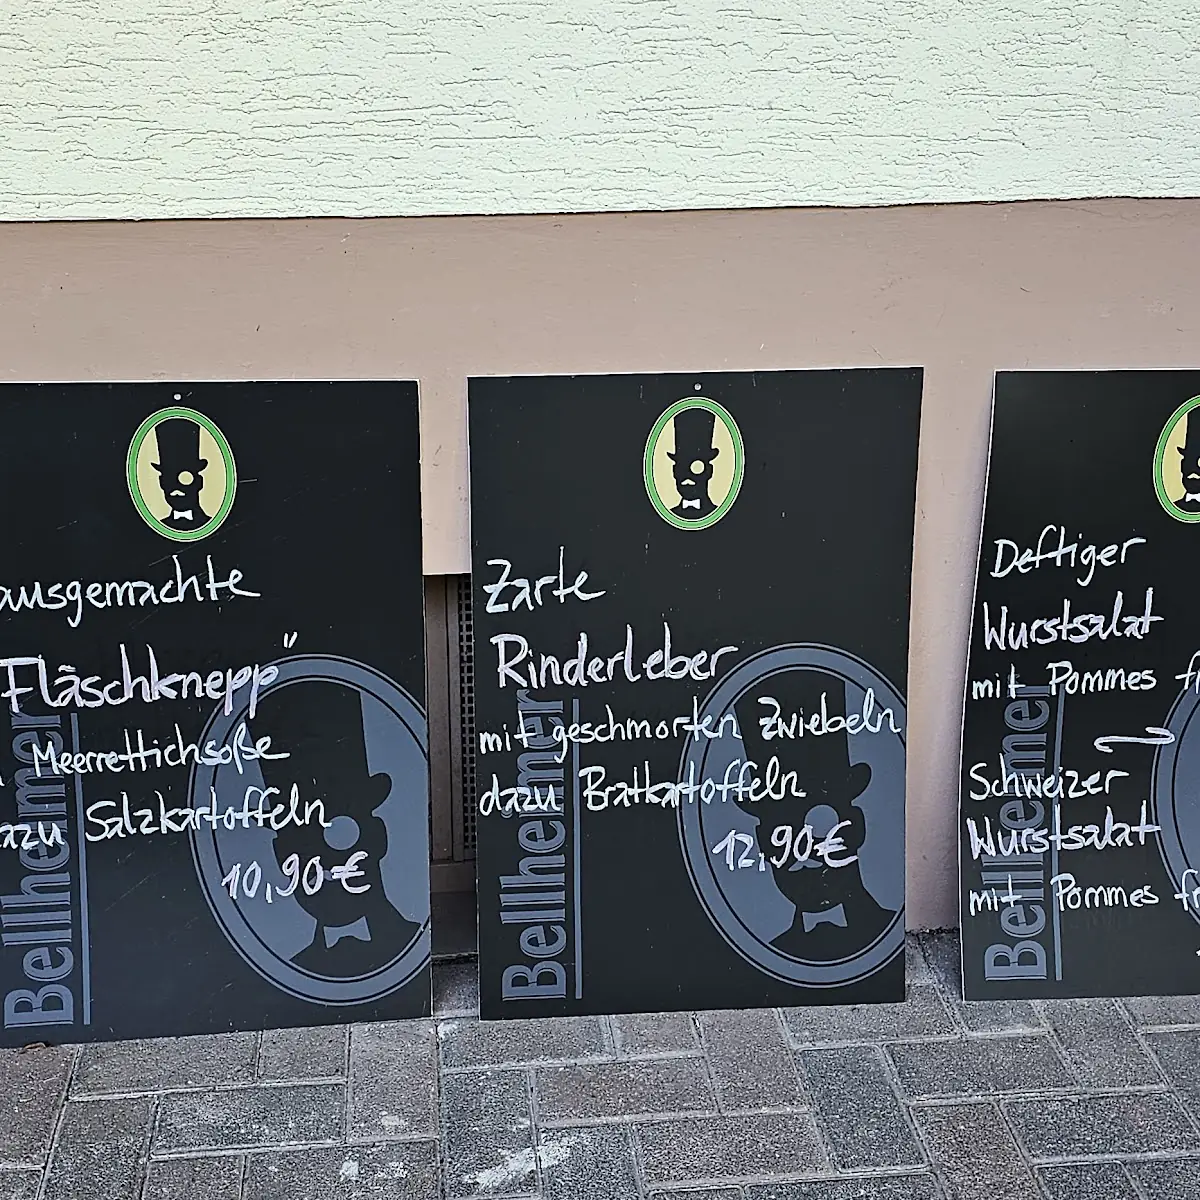 ausgemachte
Fläschknepp"
Meerrettichsoße
dazu Salzkartoffeln
10,90€
Bellheimer
Zarte
Rinderleber
mit geschmorten Zwiebeln
dazu Bratkartoffeln
12,90€
Bellheimer
Deftiger
Wurstsalat
mit Pommes fr
Schweizer
Wurstsalat
mit Pommes fr
Bellheimer